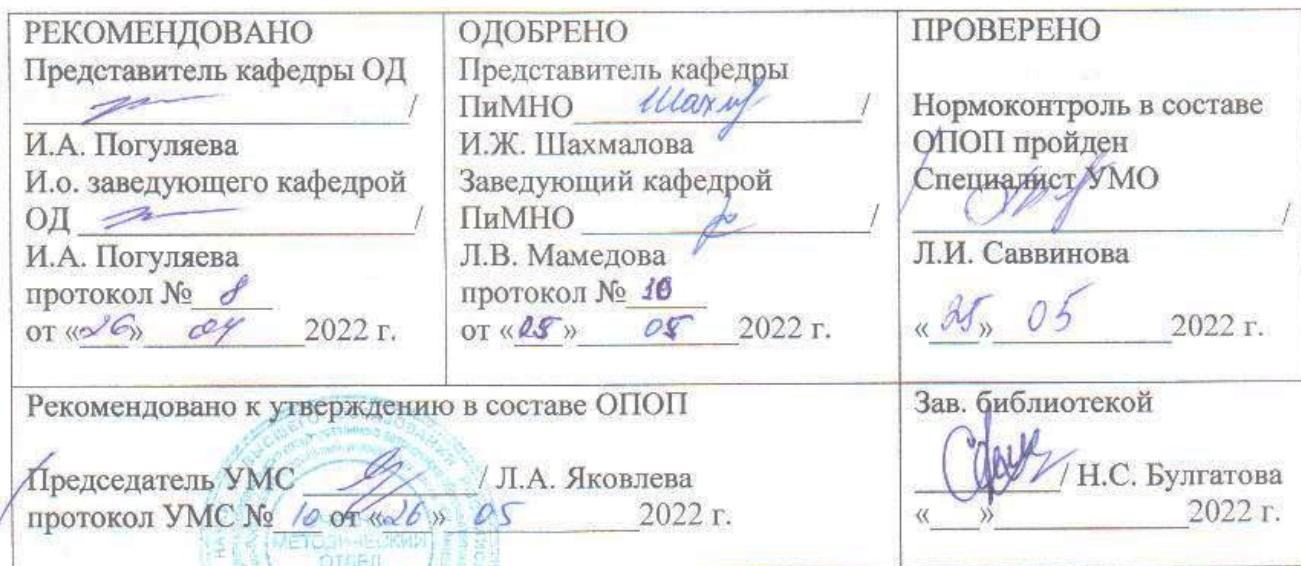 РЕКОМЕНДОВАНО
Представитель кафедры ОД
/
И.А. Погуляева
И.о. заведующего кафедрой
ОД /
И.А. Погуляева
протокол № 8
от «26» 04 2022 г.
ОДОБРЕНО
Представитель кафедры
ПиМНО Шахм /
И.Ж. Шахмалова
Заведующий кафедрой
ПиМНО /
Л.В. Мамедова
протокол № 10
от «25» 05 2022 г.
ПРОВЕРЕНО
Нормоконтроль в составе
ОПОП пройден
Специалист УМО
/
Л.И. Саввинова
«25» 05 2022 г.
Рекомендовано к утверждению в составе ОПОП
Председатель УМС / Л.А. Яковлева
протокол УМС № 10 от «26» 05 2022 г.
МЕТОДИЧЕСКИЙ
ОТДЕЛ
Зав. библиотекой
/ Н.С. Булгатова
« » 2022 г.